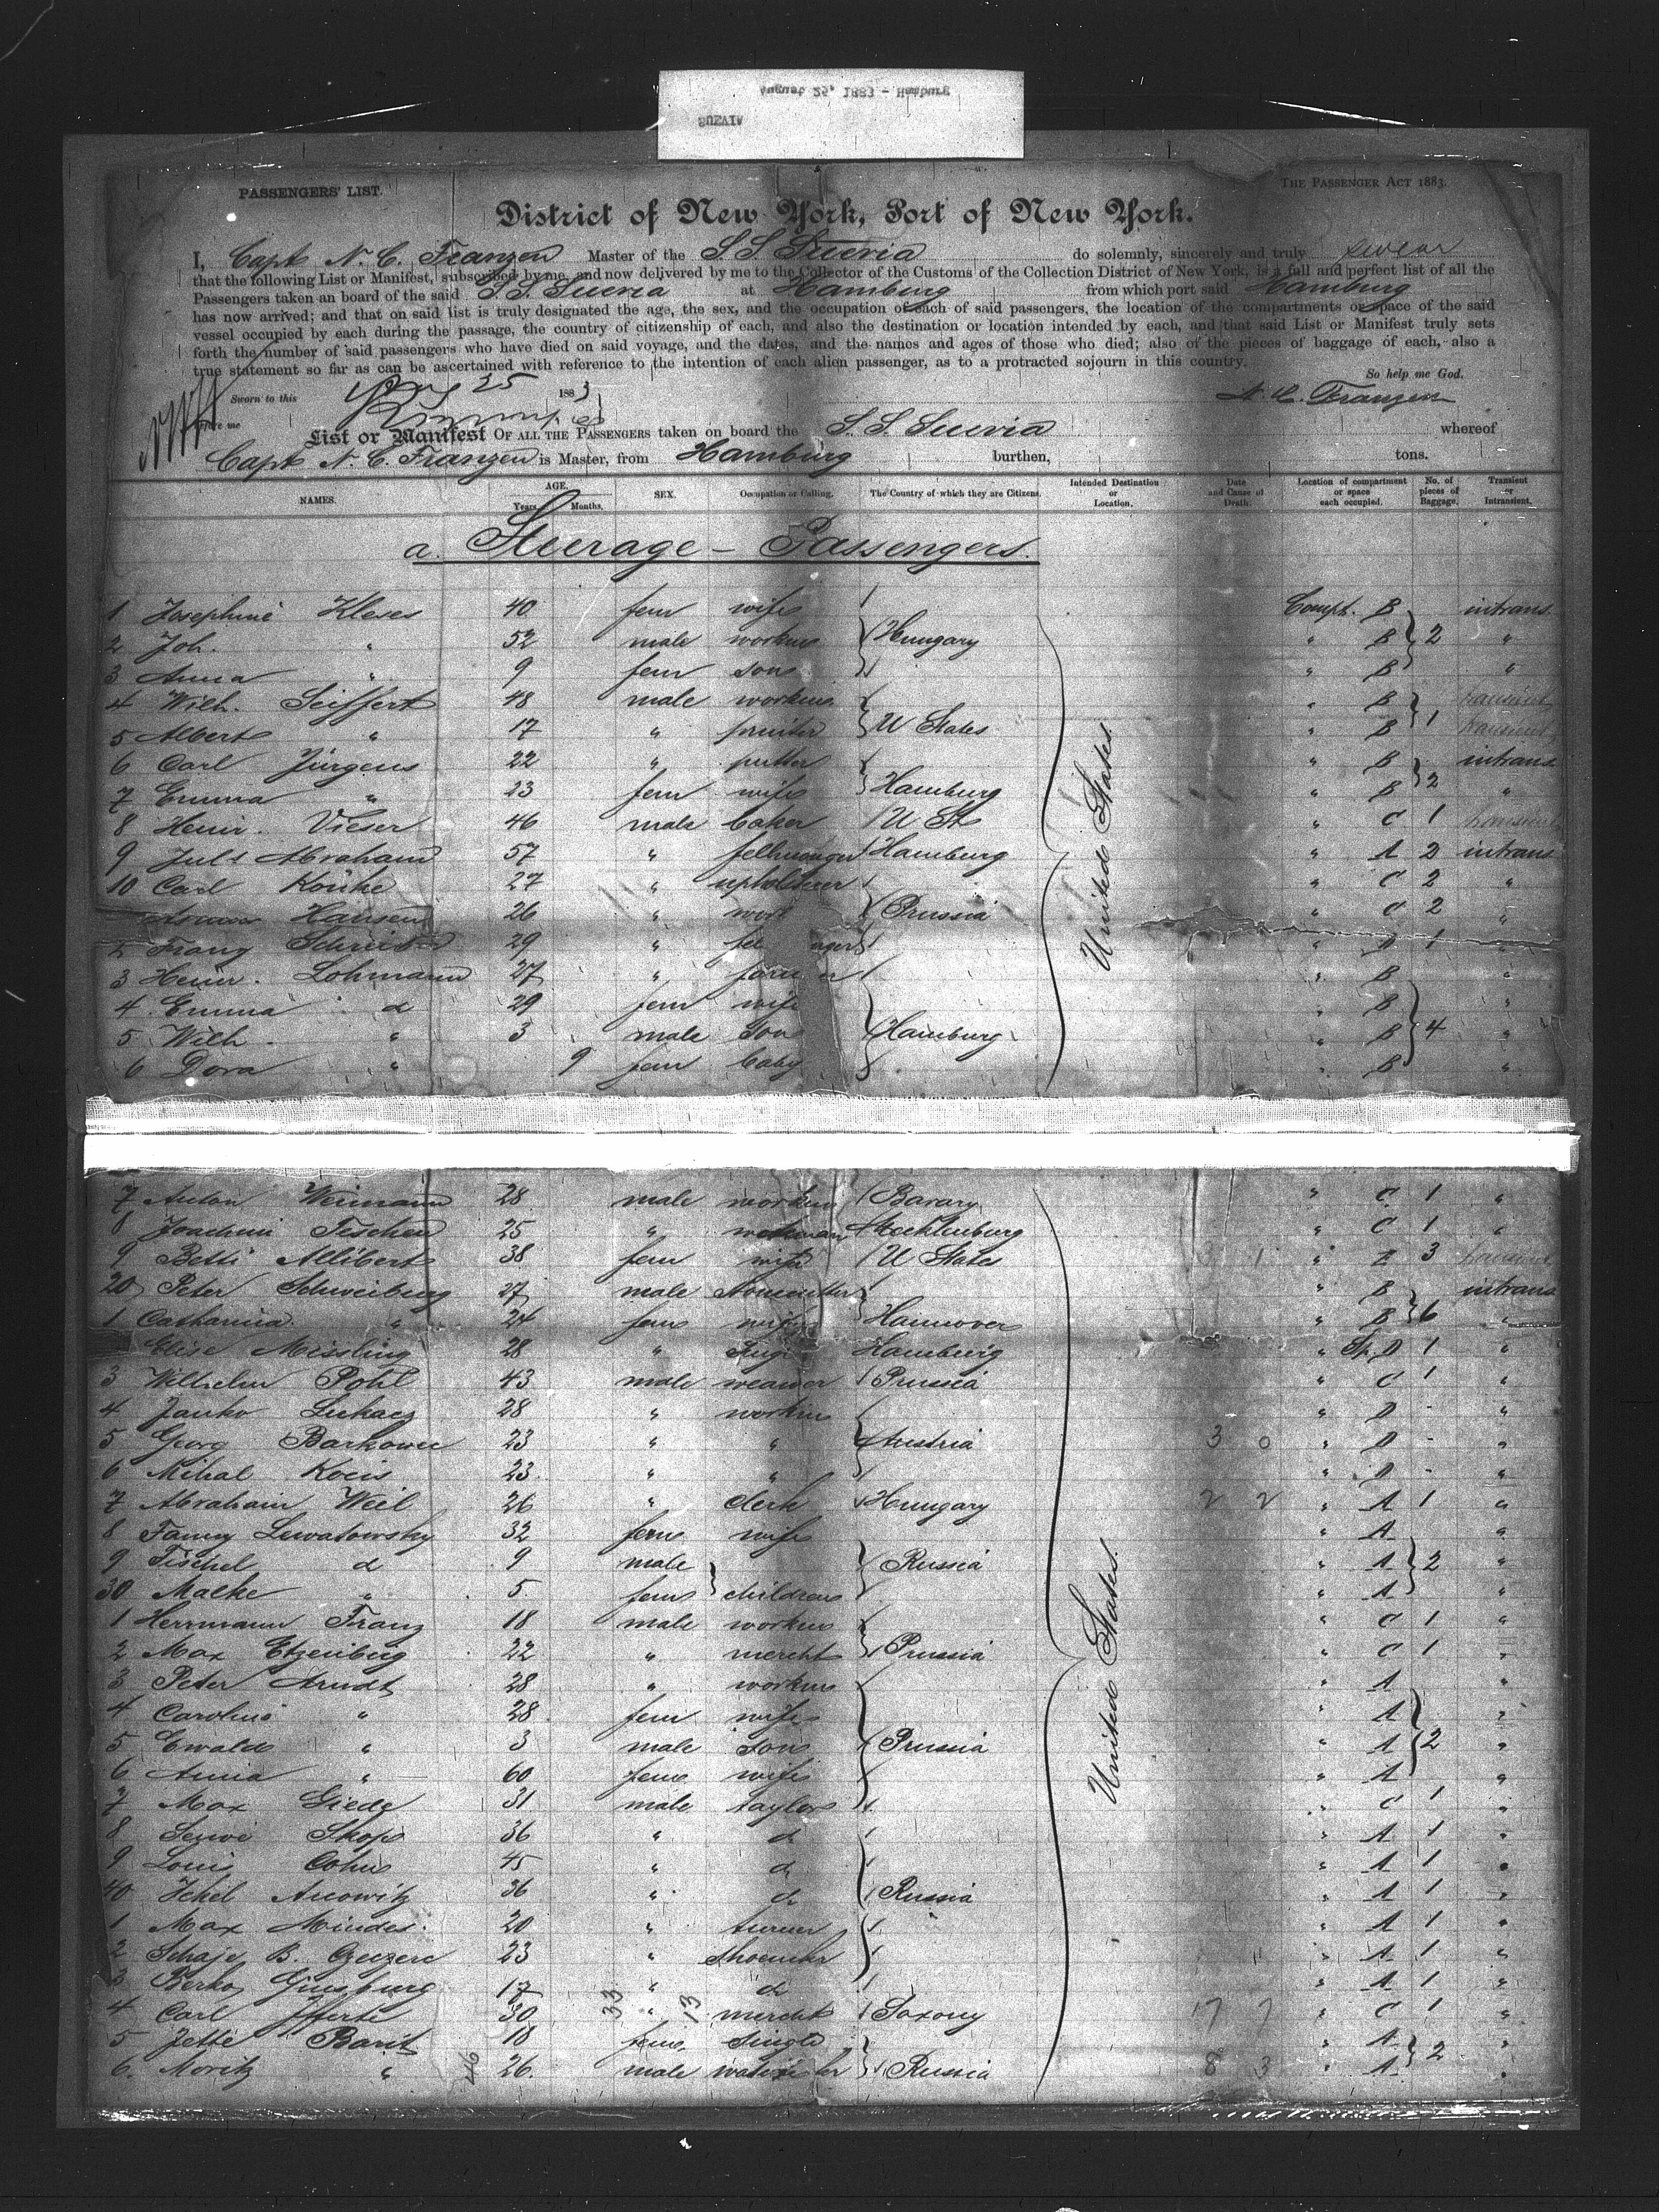 August 25, 1883 - Hamburg
SUEVIA
PASSENGERS' LIST.
THE PASSENGER ACT 1883.
District of New York, Port of New York.
I, Capt N. C. Franzen Master of the S.S. Suevia do solemnly, sincerely and truly swear
that the following List or Manifest, subscribed by me, and now delivered by me to the Collector of the Customs of the Collection District of New York, is a full and perfect list of all the
Passengers taken on board of the said S.S. Suevia at Hamburg from which port said Hamburg
has now arrived; and that on said list is truly designated the age, the sex, and the occupation of each of said passengers, the location of the compartments or space of the said
vessel occupied by each during the passage, the country of citizenship of each, and also the destination or location intended by each, and that said List or Manifest truly sets
forth the number of said passengers who have died on said voyage, and the dates, and the names and ages of those who died; also of the pieces of baggage of each, also a
true statement so far as can be ascertained with reference to the intention of each alien passenger, as to a protracted sojourn in this country.
So help me God.
Sworn to this Aug 25 1883 N. C. Franzen
before me
List or Manifest OF ALL THE PASSENGERS taken on board the S.S. Suevia whereof
Capt N. C. Franzen is Master, from Hamburg burthen, tons.
NAMES. AGE. Years. Months. SEX. Occupation or Calling. The Country of which they are Citizens. Intended Destination or Location. Date and Cause of Death. Location of compartment or space each occupied. No. of pieces of Baggage. Transient or Intransient.
a. Steerage - Passengers.
1 Josephine Kleses 40 fem wife Compt. B intrans
2 Joh. " 52 male workm Hungary " B 2 "
3 Anna " 9 fem son " B "
4 Wilh. Seiffert 48 male workm " B transient
5 Albert " 17 " U States " B 1 transient
6 Carl Jürgens 22 " " B intrans
7 Emma " 23 fem wife Hamburg " B 2 "
8 Heinr. Vieser 46 male baker U St " C 1 transient
9 Juls Abraham 57 " fellmonger Hamburg " A 2 intrans
10 Carl 27 " upholsterer " C 2 "
Hansen 26 " work Prussia " C 2 "
2 Franz Schreiber 29 " " D 1 "
3 Heinr. Lohmann 27 " farmer " B "
4 Emma d 29 fem wife " B "
5 Wilh. " 3 male son Hamburg " B 4 "
6 Dora " 9 fem baby " B "
United States.
7 Anton Weimann 28 male workm Bavary " C 1 "
8 Joachim Teschen 25 " workman Mecklenburg " C 1 "
9 Betti Allibert 38 fem wife U States " E 3 transient
20 Peter Schweiburg 27 male stonecutter " B intrans
1 Catharina " 24 fem wife Hannover " B 6 "
Elise Meissling 28 " Hamburg " D 1 "
3 Wilhelm Pohl 43 male weawer Prussia " C 1 "
4 Janko Lukacz 28 " workm " D - "
5 Georg 23 " " Austria 3 0 " D - "
6 Mihal Kocis 23 " " " D - "
7 Abraham Weil 26 " clerk Hungary 2 2 " A 1 "
8 Fanny Lewatowsky 32 fem wife " A "
9 Fischel d 9 male Russia " A 2 "
30 Malke " 5 fem children " A "
1 Herrmann Franz 18 male workm " C 1 "
2 Max Etzenberg 22 " mercht Prussia " C 1 "
3 Peter Arndt 28 " workm " A "
4 Caroline " 28 fem wife " A "
5 Ewald " 3 male son Prussia " A 2 "
6 Anna " 60 fem wife " A "
7 Max Giede 31 male taylor " C 1 "
8 Skop 36 " d " A 1 "
9 Louis Cohn 45 " d " A 1 "
40 36 " d Russia " A 1 "
1 Max Mindes 20 " turner " A 1 "
2 Schaje B. 23 " shoemkr " A 1 "
3 Berko Ginsburg 17 " d " A 1 "
4 Carl 30 33 " 13 mercht Saxony 17 7 " C 1 "
5 Jette Barit 18 fem single " A 2 "
6. Moritz " 46 26. male Russia 8 3 " A "
United States.